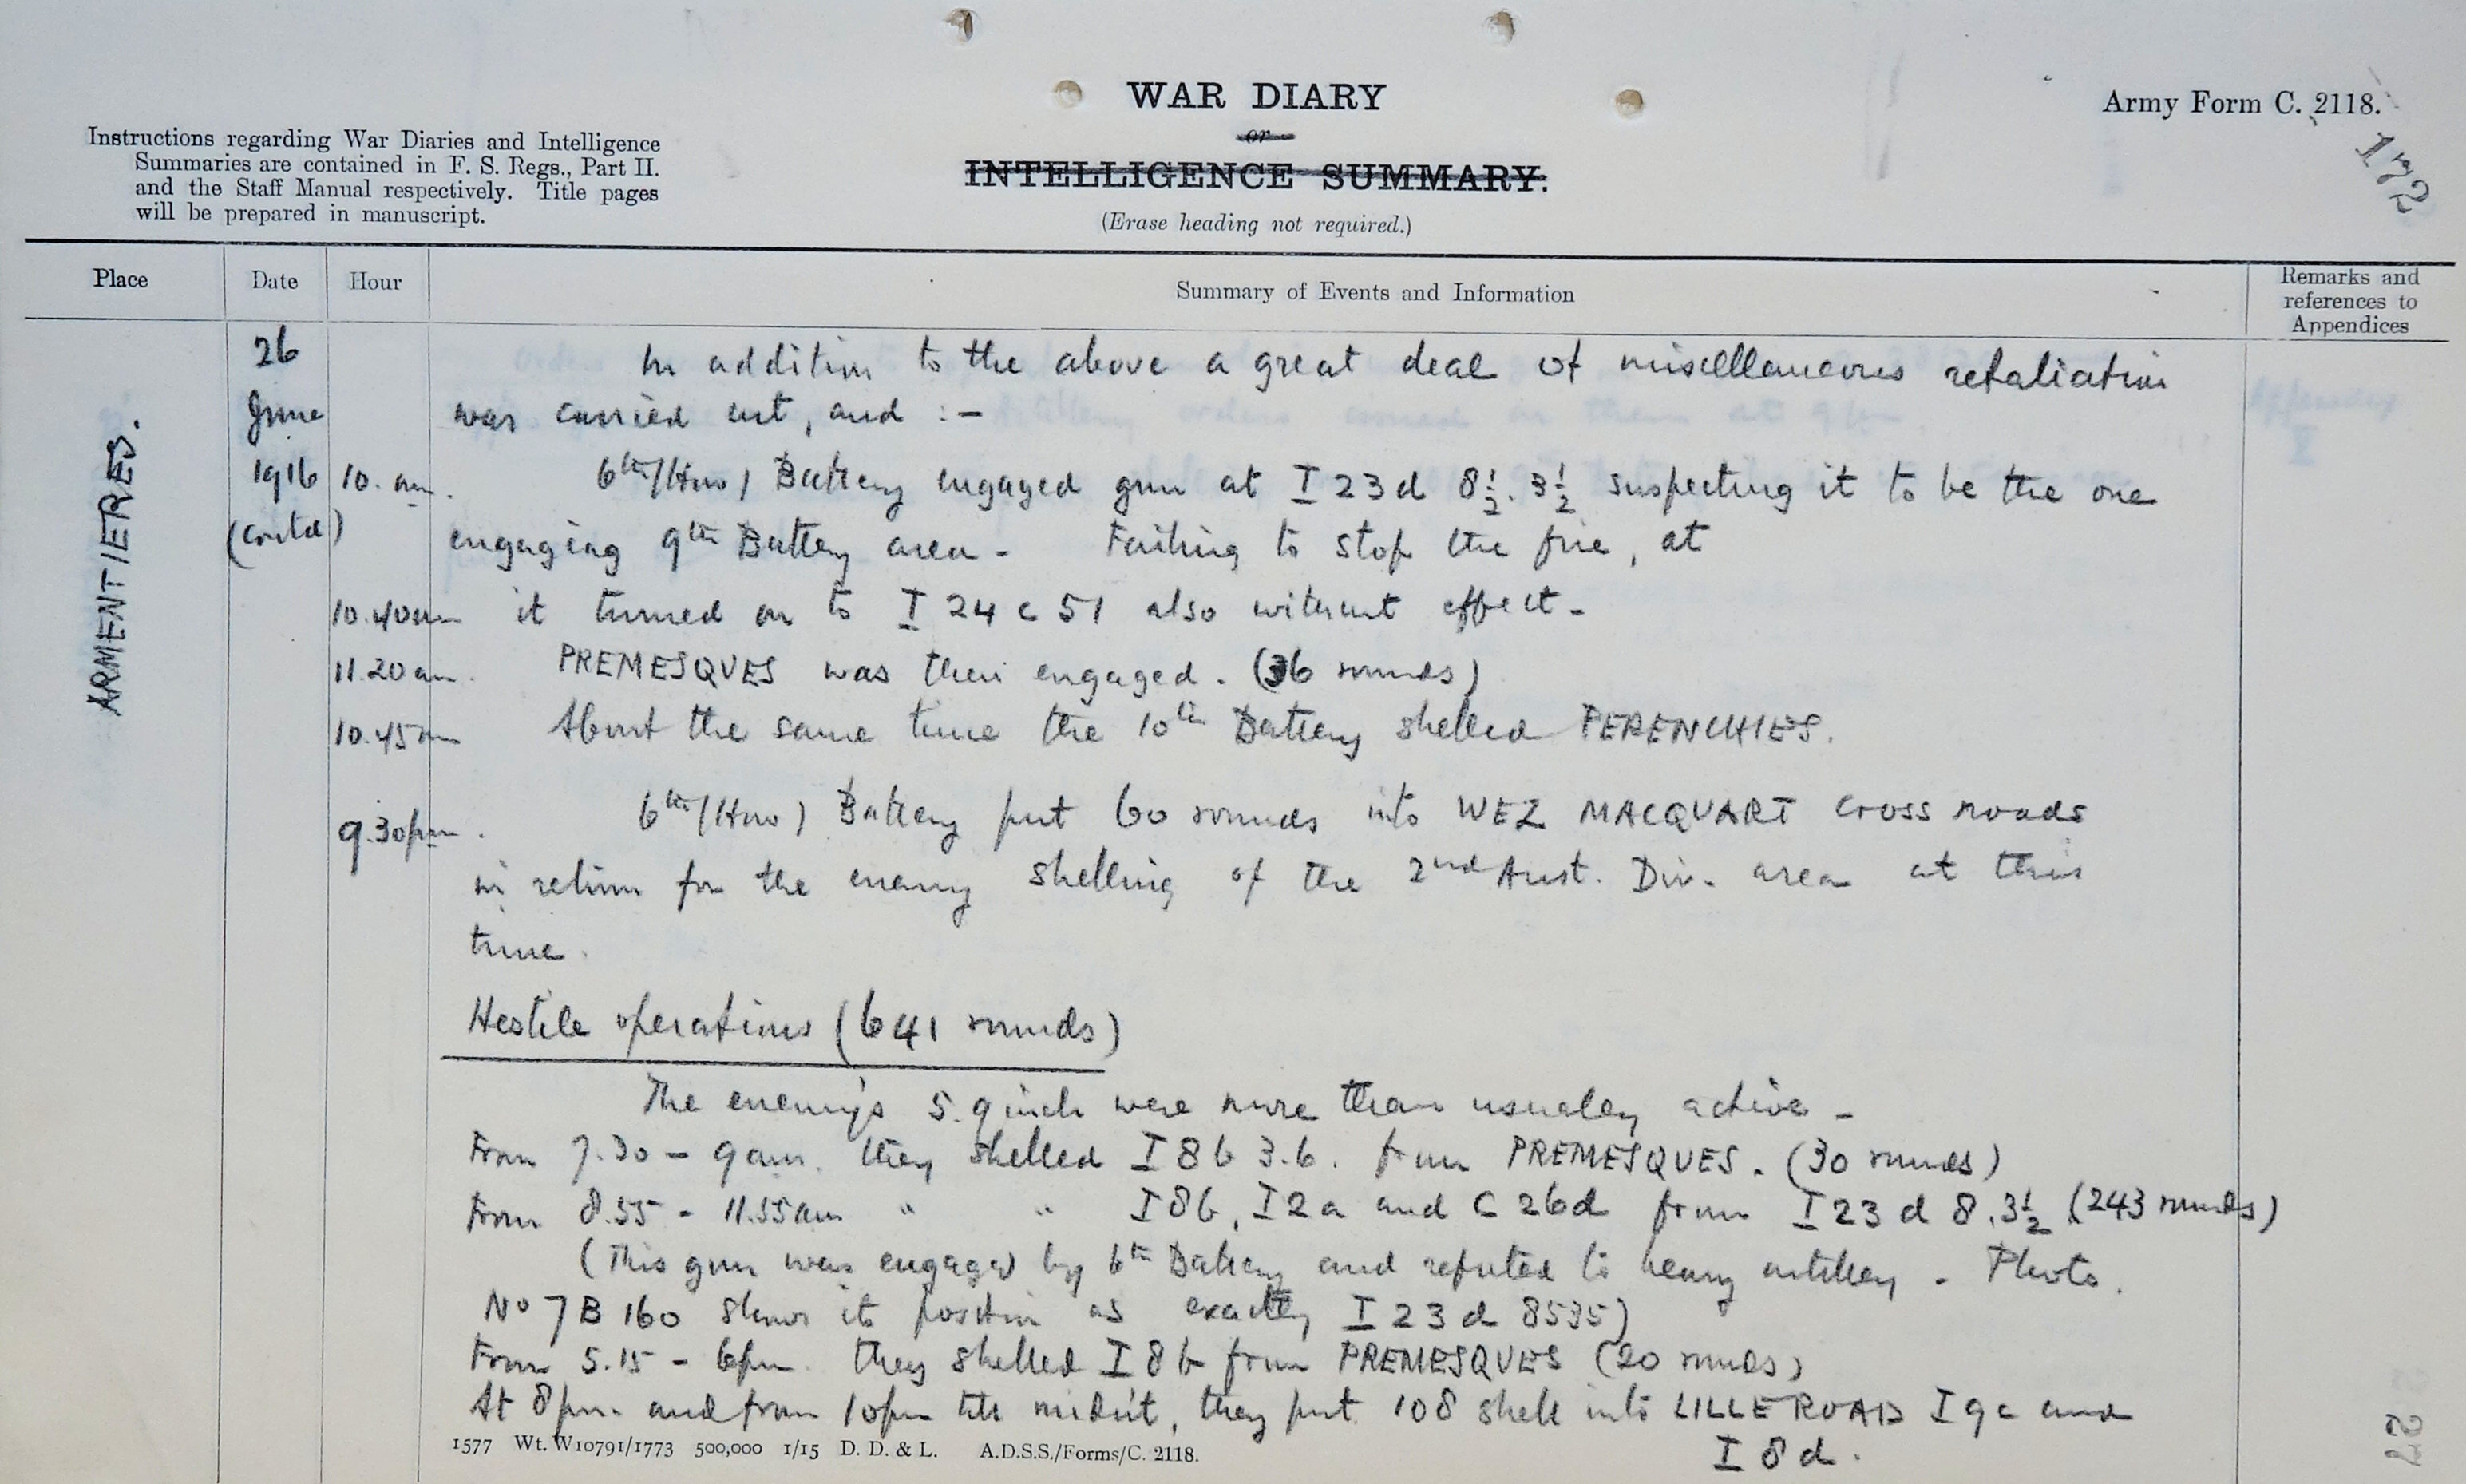 WAR DIARY
or
INTELLIGENCE SUMMARY.
(Erase heading not required.)
Army Form C. 2118.
172
Instructions regarding War Diaries and Intelligence
Summaries are contained in F. S. Regs., Part II.
and the Staff Manual respectively. Title pages
will be prepared in manuscript.
Place Date Hour Summary of Events and Information Remarks and
references to
Appendices
ARMENTIERES.
26 In addition to the above a great deal of miscelllaneous retaliation
June was carried out, and :-
1916 10. am. 6th (How) Battery engaged gun at I 23 d 8½. 3½ suspecting it to be the one
(contd) engaging 9th Battery area - Failing to stop the fire, at
10.40am it turned on to I 24 c 51 also without effect -
11.20 am. PREMESQUES was then engaged. (36 rounds)
10.45am About the same time the 10th Battery shelled PERENCHIES.
9.30pm. 6th (How) Battery put 60 rounds into WEZ MACQUART cross roads
in return for the enemy shelling of the 2nd Aust. Div. area at this
time.
Hostile operations (641 rounds)
The enemy's 5.9 inch were more than usually active -
From 7.30 - 9 am. they shelled I 8 b 3.6. from PREMESQUES. (30 rounds)
From 8.55 - 11.55am " " I 8 b, I 2 a and C 26 d from I 23 d 8.3½ (243 rounds)
(This gun was engaged by 6th Battery and reputed to heavy artillery - Photo.
No 7 B 160 shows its position as exactly I 23 d 8535)
From 5.15 - 6pm. they shelled I 8 b from PREMESQUES (20 rounds)
At 8pm. and from 10pm till midn't, they put 108 shell into LILLE ROAD I 9 c and
I 8 d.
1577 Wt. W10791/1773 500,000 1/15 D. D. & L. A.D.S.S./Forms/C. 2118.